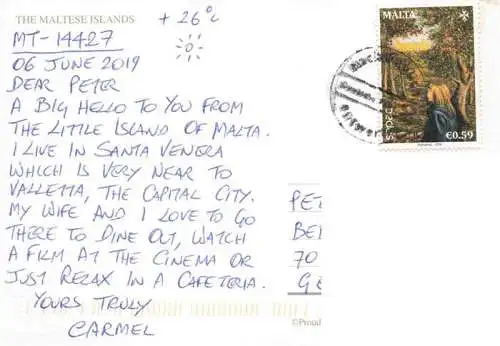 THE MALTESE ISLANDS
+ 26°C
MT-14427
06 JUNE 2019
DEAR PETER
A BIG HELLO TO YOU FROM
THE LITTLE ISLAND OF MALTA.
I LIVE IN SANTA VENERA
WHICH IS VERY NEAR TO
VALLETTA, THE CAPITAL CITY.
MY WIFE AND I LOVE TO GO
THERE TO DINE OUT, WATCH
A FILM AT THE CINEMA OR
JUST RELAX IN A CAFETERIA.
YOURS TRULY
CARMEL
MALTA
€0.59
PET
BE
70
GE
©Proud